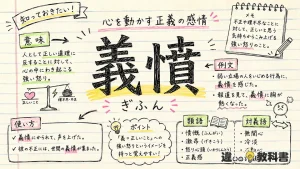 知っておきたい!
心を動かす正義の感情
メモ
不正や理不尽なことに
対して、正しいと思う
気持ちからこみ上げる
強い怒りのこと。
意味
人として正しい道理に
反することに対して、
心の中にわき起こる
強い怒り。
正しいこと
義憤
ぎふん
例文
弱い立場の人をいじめる行為に、
義憤を感じた。
報道を見て、義憤に胸が
熱くなった。
使い方
義憤にかられて、声を上げた。
彼の不正には、世間の義憤が集まった。
ポイント
「義=正しいこと」への
強い怒りというイメージを
持つと覚えやすい!
類語
憤慨(ふんがい)
激昂(げきこう)
正義感
対義語
無関心
冷淡
教科書